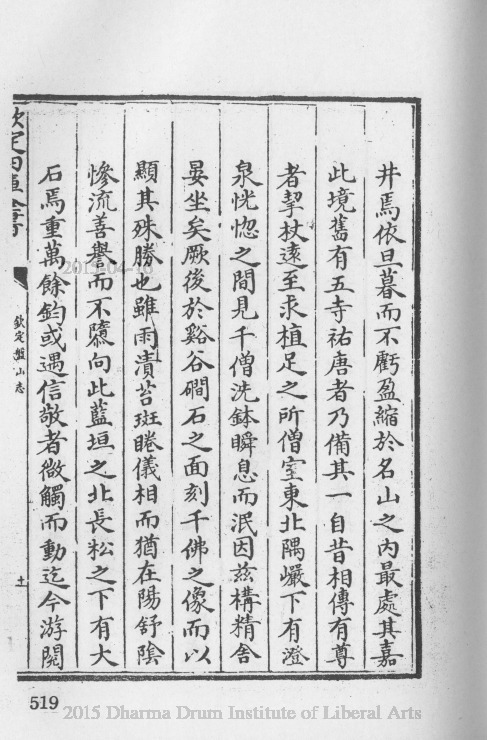 井焉依旦暮而不虧盈縮於名山之內最處其嘉
此境舊有五寺祐唐者乃備其一自昔相傳有尊
者挈杖遠至求植足之所僧室東北隅巖下有澄
泉恍惚之間見千僧洗鉢瞬息而泯因茲構精舍
晏坐矣厥後於谿谷磵石之面刻千佛之像而以
顯其殊勝也雖雨漬苔斑睠儀相而猶在陽舒陰
慘流善譽而不隳向此藍垣之北長松之下有大
石焉重萬餘鈞或遇信敬者微觸而動迄今游閱
欽定四庫全書
欽定盤山志
土
519
2015-04-16
2015 Dharma Drum Institute of Liberal Arts